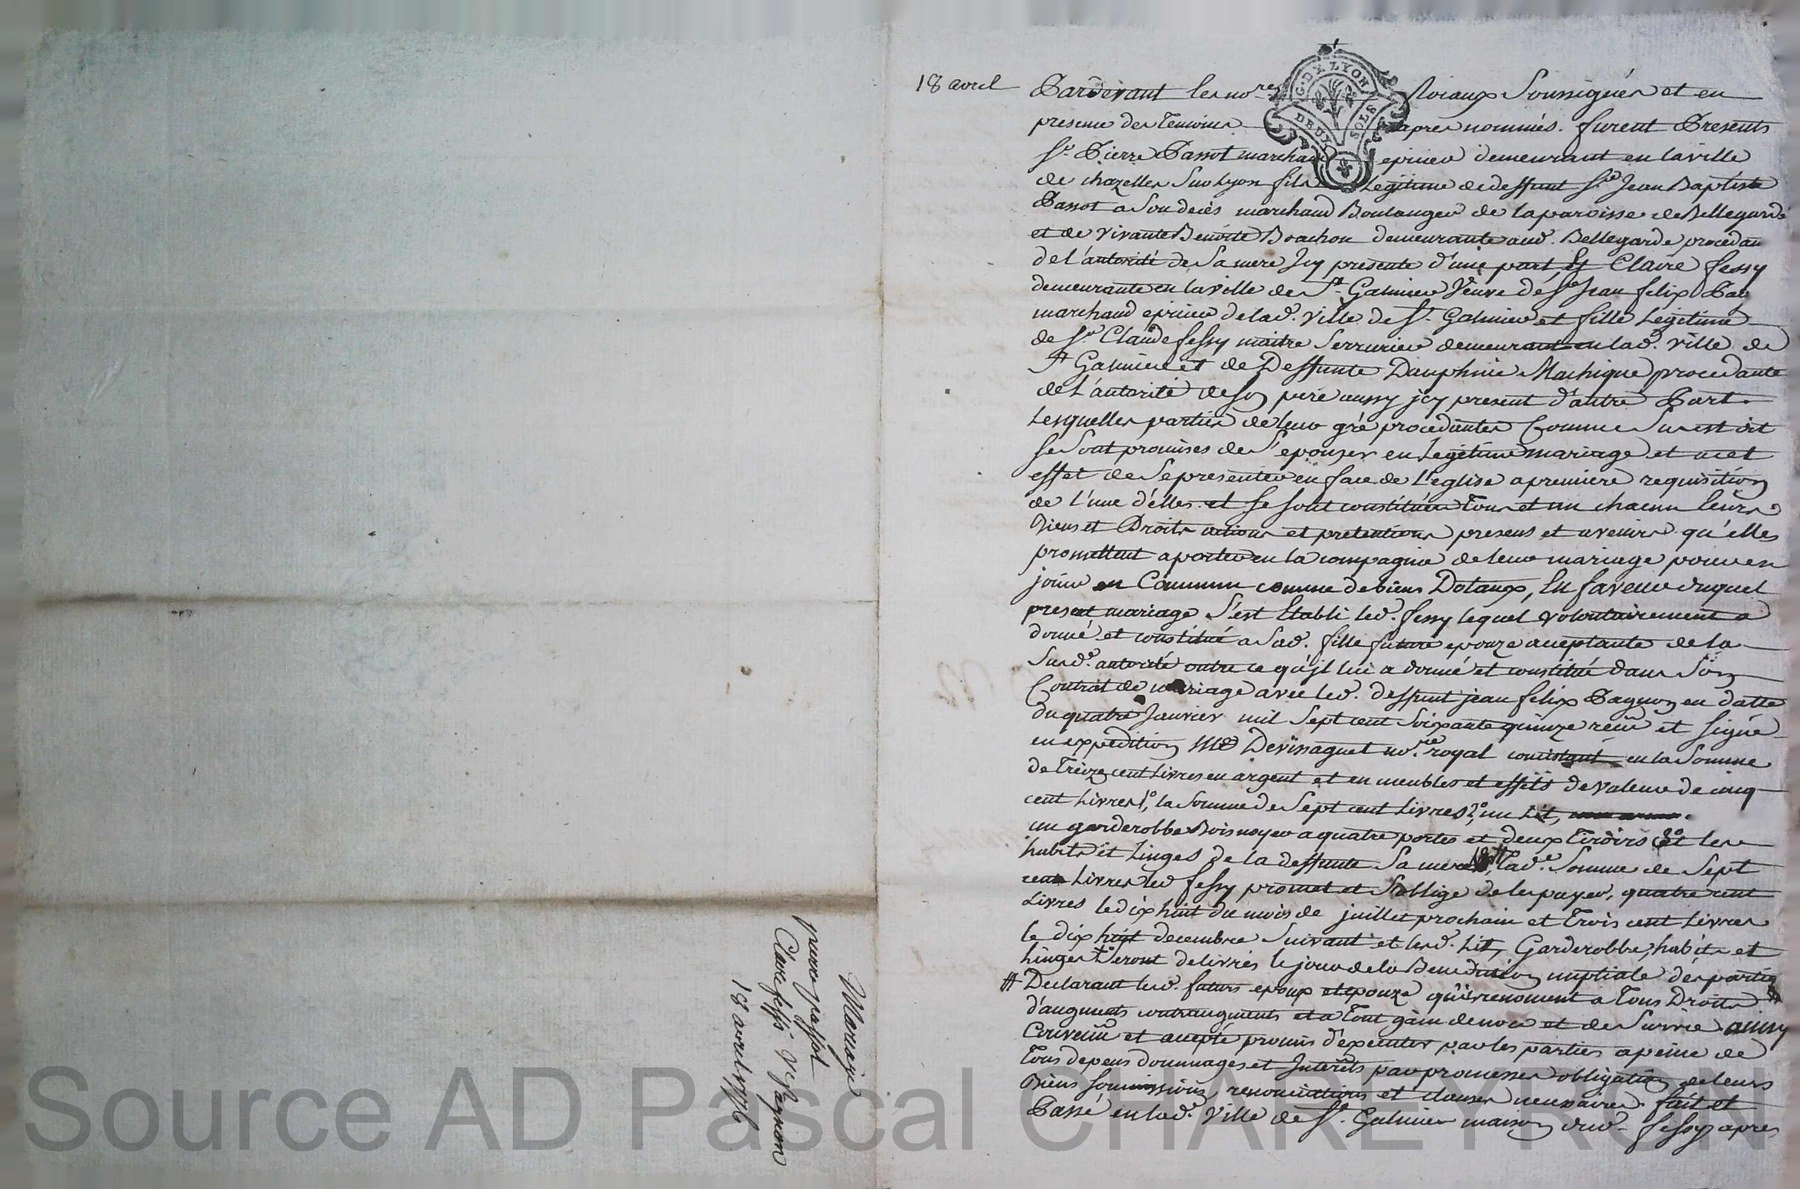 18 avril
Pardevant les no.res Roiaux Soussignés et en
presence des Temoins apres nommés. furent Presents
Sr. Pierre Passot marchand epicier demeurant en la ville
de chazelles Sur Lyon fils Legitime de deffunt Sr. Jean Baptiste
Passot a Son decés marchand Boulanger de la paroisse de Bellegarde
et de vivante Benoite Brachon demeurante aud. Bellegarde procedan
de l'autorité de Sa mere Jcy presente d'une part Et Claire fessy
demeurante en la ville de St. Galmier Veuve de Sr. Jean felix Pag
marchand epicier de lad. ville de St. Galmier et fille Legitime
de Sr. Claude fessy maitre Serrurier demeurant en lad. ville de
St Galmier et de Deffunte Dauphine Machique procedante
de L'autorité de Son pere aussy jcy present d'autre Part.
Lesquelles parties de leur gré procedantes Comme Sus est dit
Se Sont promises de S'epouser en Legitime mariage et a cet
effet de Se presenter en face de L'eglise a premiere requisition
de l'une d'elles. et se sont constituées Tous et un chacun leurs
Biens et Droits actions et pretentions presens et avenirs qu'elles
promettent aporter en la compagnie de leur mariage pour en
jouir en Commun comme de biens Dotaux, En faveur duquel
present mariage S'est Etabli led. fessy lequel volontairement a
donné et constitué a Sad. fille future epouze acceptante de la
Susd.e autorité outre ce qu'jl lui a donné et constitué dans Son
Contrat de mariage avec led. deffunt jean felix Pagnon en datte
du quatre Janvier mil Sept cent Soixante quinze reçu et signé
en expedition Me Devinaguet no.re royal consistant en la Somme
de Treize cent Livres en argent et en meubles et effets de valeur de cinq
cent Livres, 1.° la Somme de Sept cent Livres 2.° un Lit,
un garderobbe Bois noyer a quatre portes et deux Tiroirs 3.° et les
habits et Linges de la deffunte Sa mere, Lad.e Somme de Sept
cent Livres led. fessy promet et S'oblige de les payer, quatre cent
Livres le dix huit du mois de juillet prochain et Trois cent Livres
le dix huit decembre Suivant et lesd. Lit, Garderobbe, habits et
Linges Seront delivrés le jour de la Benediction nuptiale des parties #
# Declarant lesd. futurs epoux et epouze qu'ils renoncent a Tous Droits
d'augments contraugments et a Tout gain de noce et de Survie ainsy
Convenu et accepté promis d'executer par les parties a peine de
Tous depens dommages et Interets par promesses obligation de leurs
Biens Soumissions, renonciations et clauses necessaires fait et
Passé en lad.e ville de St. Galmier maison dud. fessy apres
Mariage
pierre passot
Claire fessy Ve pagnon
18 avril 1776
G. DE LYON
DEUX SOLS
Source AD Pascal CHAREYRON